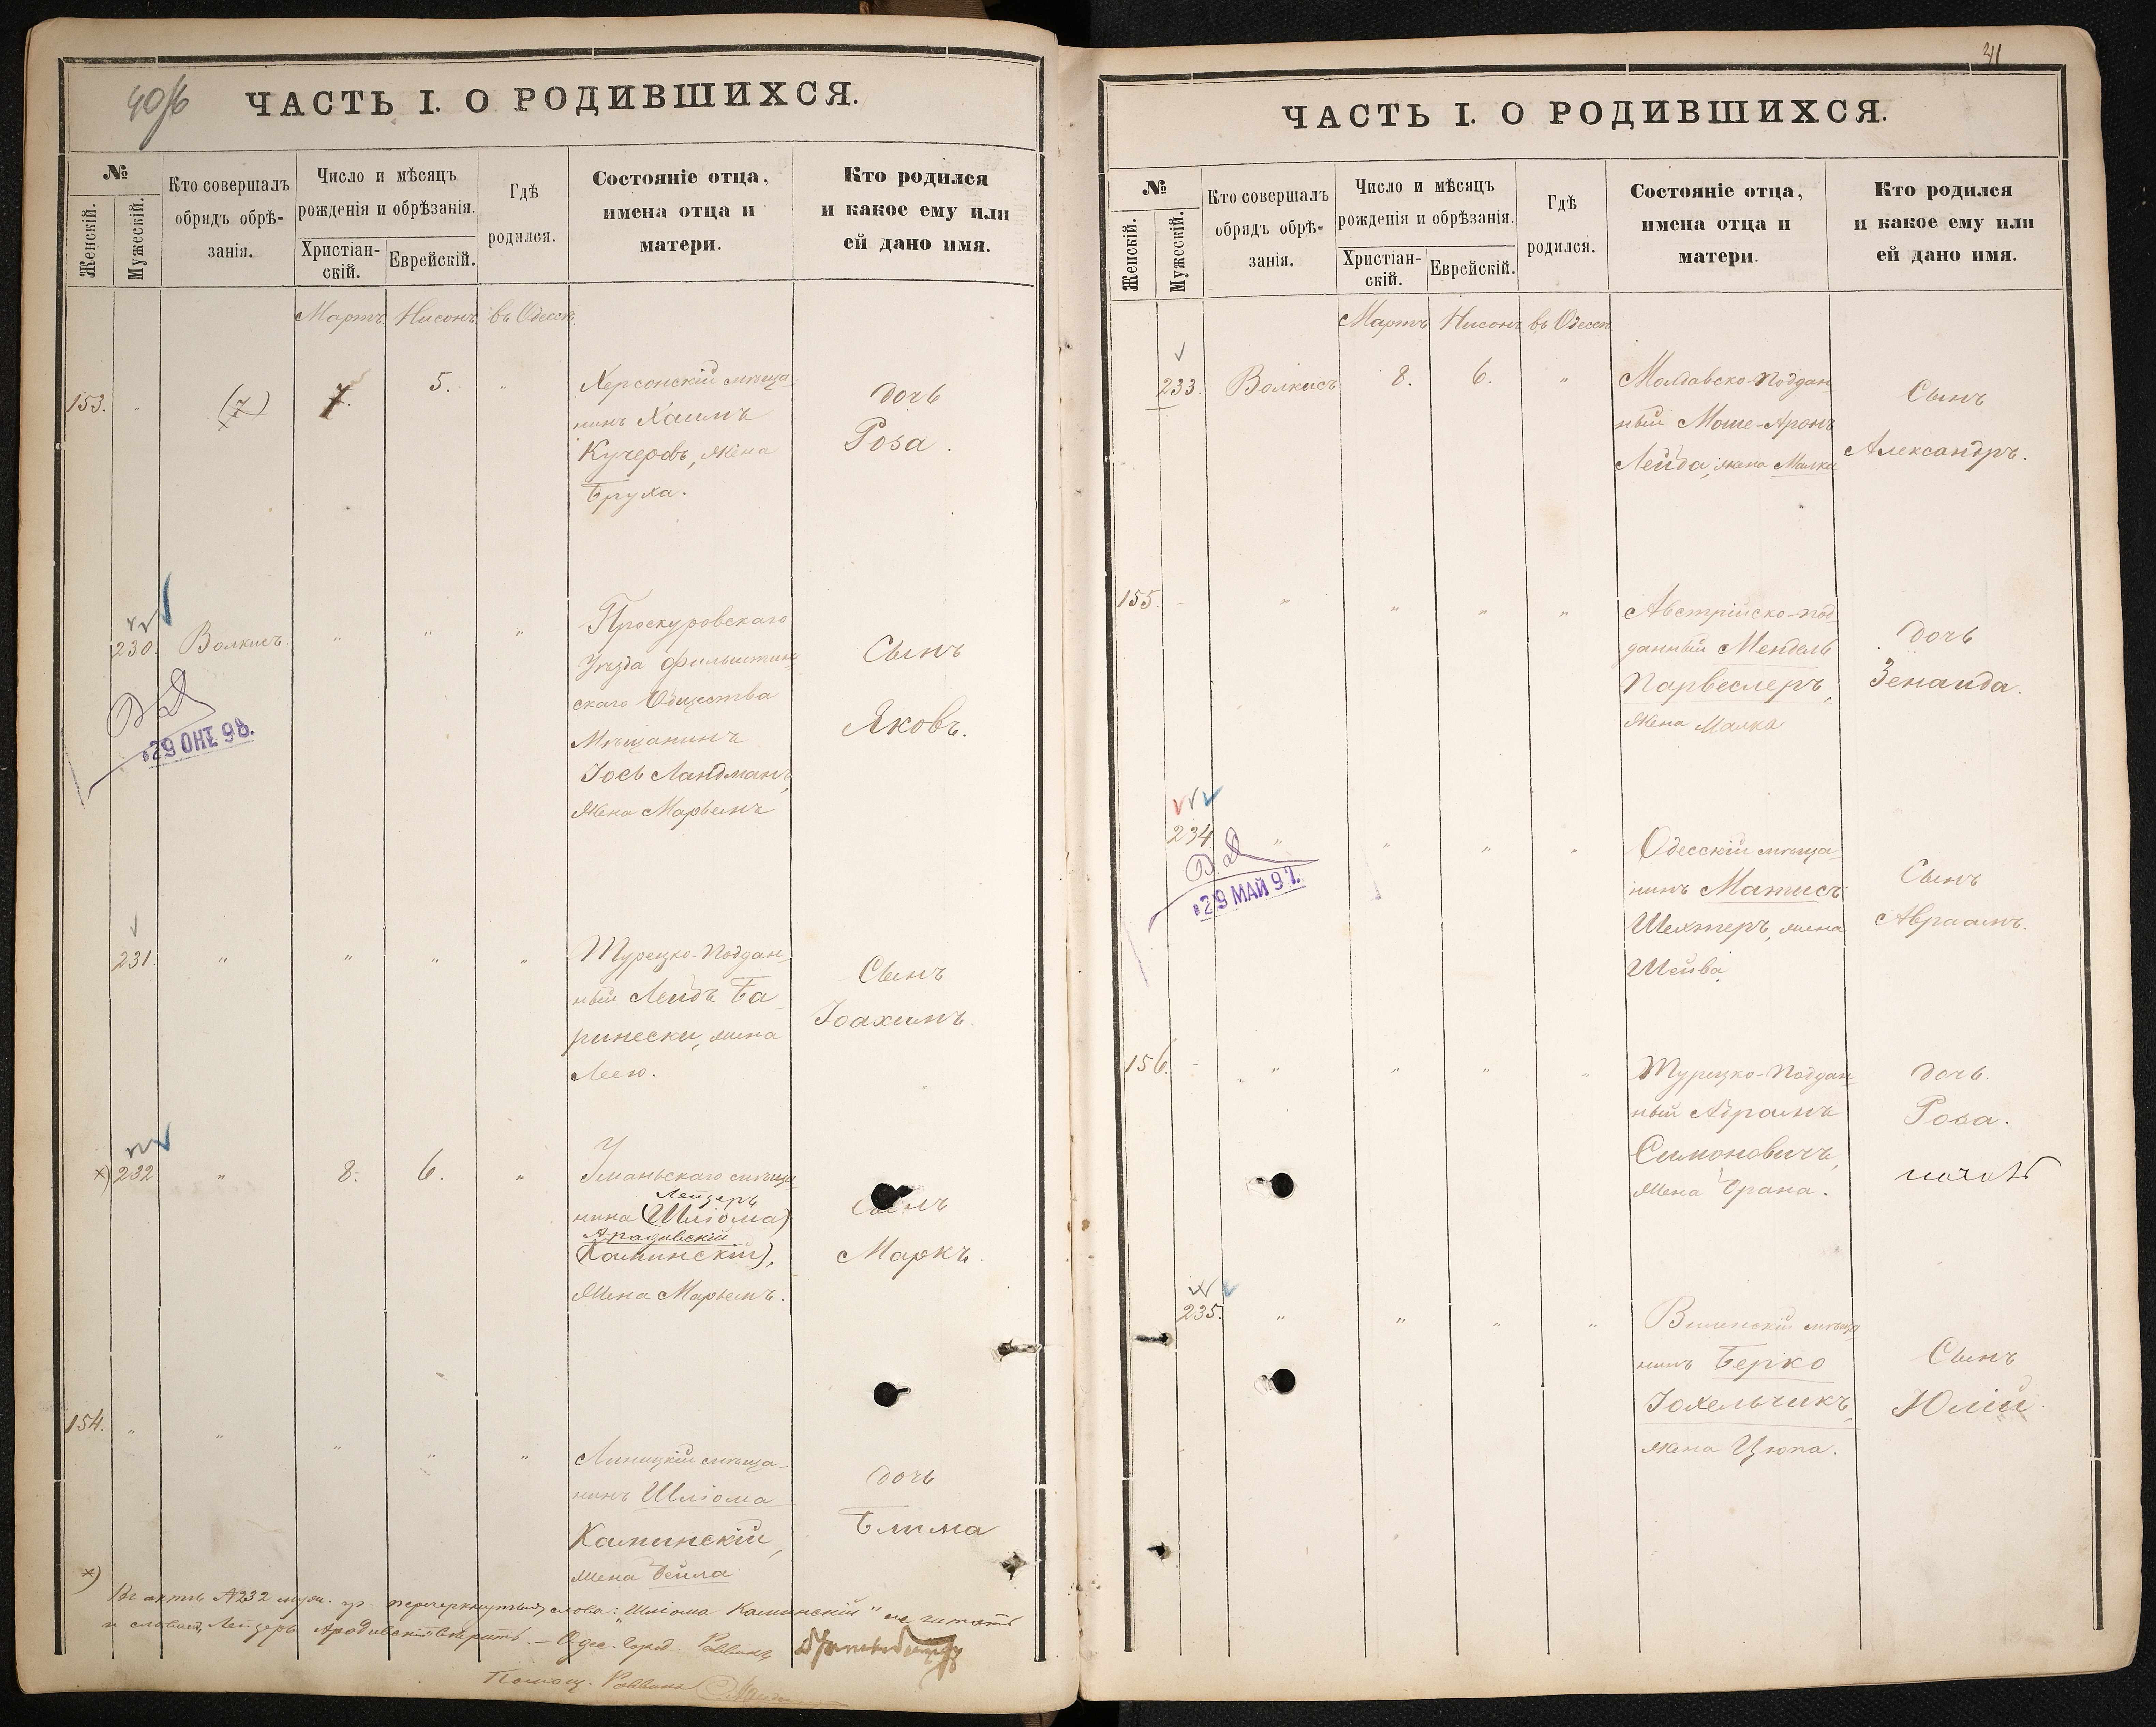 40/б
ЧАСТЬ I. О РОДИВШИХСЯ.
№
Женскій.
Мужескій.
Кто совершалъ
обрядъ обрѣ-
занія.
Число и мѣсяцъ
рожденія и обрѣзанія.
Христіан-
скій.
Еврейскій.
Гдѣ
родился.
Состояніе отца,
имена отца и
матери.
Кто родился
и какое ему или
ей дано имя.
Мартъ Нисонъ въ Одессѣ
153. " (7) 7. 5. "
Херсонскій мѣща-
нинъ Хаимъ
Кучеровъ, жена
Бруха.
дочь
Роза.
230. Волкисъ. " " "
Проскуровскаго
Уѣзда Фильштин-
скаго Общества
Мѣщанинъ
Іось Ландманъ,
жена Марьемъ
Сынъ
Яковъ.
29 ОКТ 98.
231. " " " "
Турецко-Поддан-
ный Лейдъ Ба-
ринески, жена
Лею.
Сынъ
Іоахимъ.
*) 232 " 8. 6. "
Уманьскаго мѣща-
Лейзеръ
нина (Шліома)
Арадивскій
(Каминскій),
жена Марьемъ.
Сынъ
Маркъ.
154. " " " " "
Липицкій мѣща-
нинъ Шліома
Каминскій,
жена Бейла
дочь
Блима
*) Въ актѣ №232 муж. зр. перечеркнутыя слова: "Шліома Каминскій" не читать
и словамъ "Лейзеръ Арадивскій" вѣрить. — Одес. Город. Раввинъ
Помощ. Раввина
41
ЧАСТЬ I. О РОДИВШИХСЯ.
№
Женскій.
Мужескій.
Кто совершалъ
обрядъ обрѣ-
занія.
Число и мѣсяцъ
рожденія и обрѣзанія.
Христіан-
скій.
Еврейскій.
Гдѣ
родился.
Состояніе отца,
имена отца и
матери.
Кто родился
и какое ему или
ей дано имя.
Мартъ Нисонъ въ Одессѣ
233. Волкисъ 8. 6. "
Молдавско-Поддан-
ный Моше-Аронъ
Лейда, жена Малка
Сынъ
Александръ.
155. - " " " "
Австрійско-под-
данный Мендель
Парвеслеръ,
жена Малка
дочь
Зенаида.
234 " " " "
Одесскій мѣща-
нинъ Матисъ
Шехтеръ, жена
Шейва.
Сынъ
Авраамъ.
29 МАЙ 97.
156. - " " " "
Турецко-Поддан-
ный Абрамъ
Симоновичъ,
жена Брана.
дочь.
Роза.
235. " " " "
Виленскій мѣща-
нинъ Берко
Іохельчикъ,
жена Цюпа.
Сынъ
Юлій.